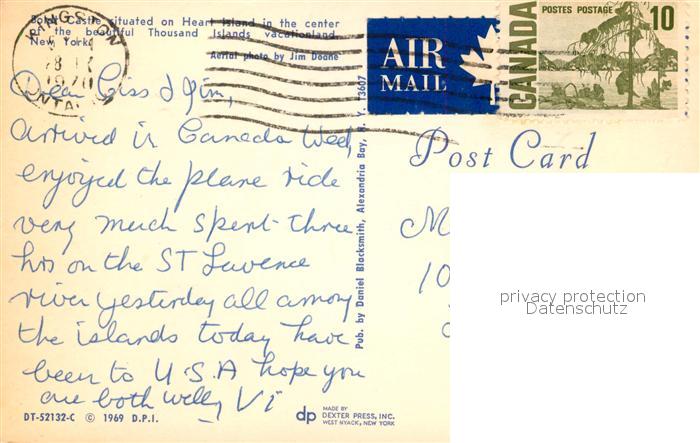 Boldt Castle situated on Heart Island in the center
of the beautiful Thousand Islands vacationland,
New York.
Aerial photo by Jim Doane
KINGSTON
1970
ONTARIO
AIR
MAIL
CANADA
POSTES POSTAGE
10
Dear Ciss & Jim,
arrived in Canada Wed,
enjoyed the plane ride
very much spent three
hrs on the ST Lavence
river yesterday all among
the islands today have
been to U.S.A hope you
are both well, Vi
Pub. by Daniel Blacksmith, Alexandria Bay, N. Y. 13607
Post Card
M
10
privacy protection
Datenschutz
DT-52132-C © 1969 D.P.I.
dp
MADE BY
DEXTER PRESS, INC.
WEST NYACK, NEW YORK